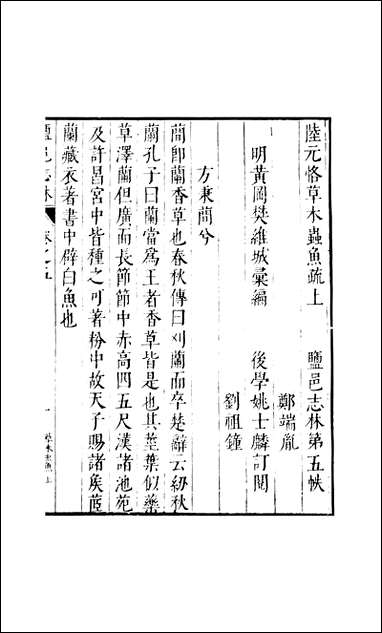 陸元恪草木蟲魚疏上　鹽邑志林第五帙
鄭端胤
明黃岡樊維城彙編　後學姚士麟訂閱
劉祖鐘
方秉蕑兮
蕑即蘭香草也春秋傳曰刈蘭而卒楚辭云紉秋
蘭孔子曰蘭當爲王者香草皆是也其莖葉似藥
草澤蘭但廣而長節節中赤高四五尺漢諸池苑
及許昌宮中皆種之可著粉中故天子賜諸矦茝
蘭藏衣著書中辟白魚也
鹽邑志林　卷之五　一　草木虫魚上